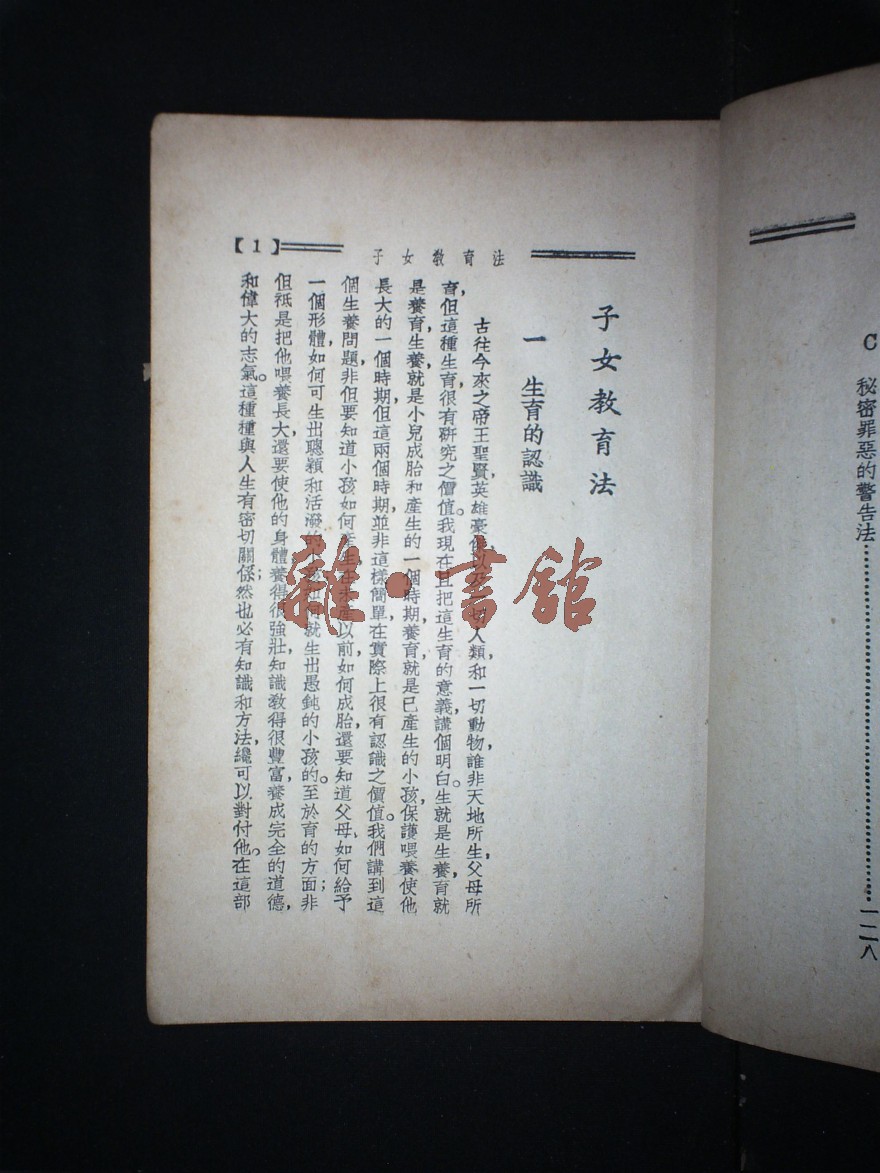 C 秘密罪惡的警告法……………………一二八
【1】 子女教育法
子女教育法
一 生育的認識
古往今來之帝王聖賢，英雄豪傑以及一切人類和一切動物，誰非天地所生，父母所
育，但這種生育，很有硏究之價值。我現在且把這生育的意義，講個明白。生就是生養，育就
是養育，生養就是小兒成胎和產生的一個時期，養育，就是已產生的小孩，保護喂養使他
長大的一個時期，但這兩個時期，並非這樣簡單，在實際上很有認識之價值。我們講到這
個生養問題，非但要知道小孩如何產生，在未產以前，如何成胎，還要知道父母，如何給予
一個形體，如何可生出聰穎和活潑的小孩，如何就生出愚鈍的小孩的。至於育的方面，非；
但祇是把他喂養長大，還要使他的身體養得很強壯，知識教得很豐富，養成完全的道德，
和偉大的志氣。這種種與人生有密切關係；然也必有知識和方法，纔可以對付他。在這部
雜·書館